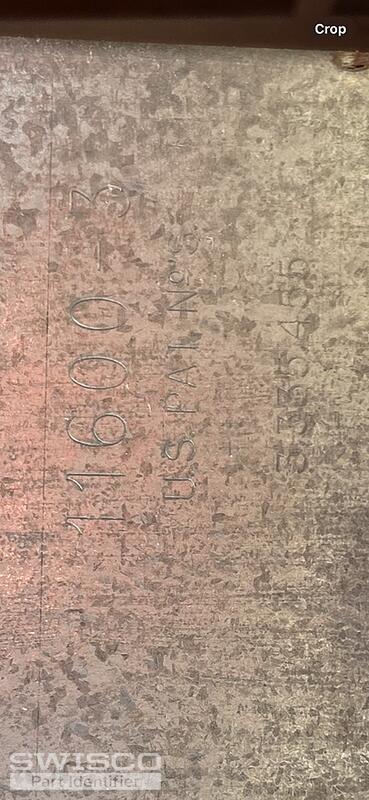 Crop
11600-3
U.S. PAT. Nº'S.
3335455
SWISCO
Part Identifier